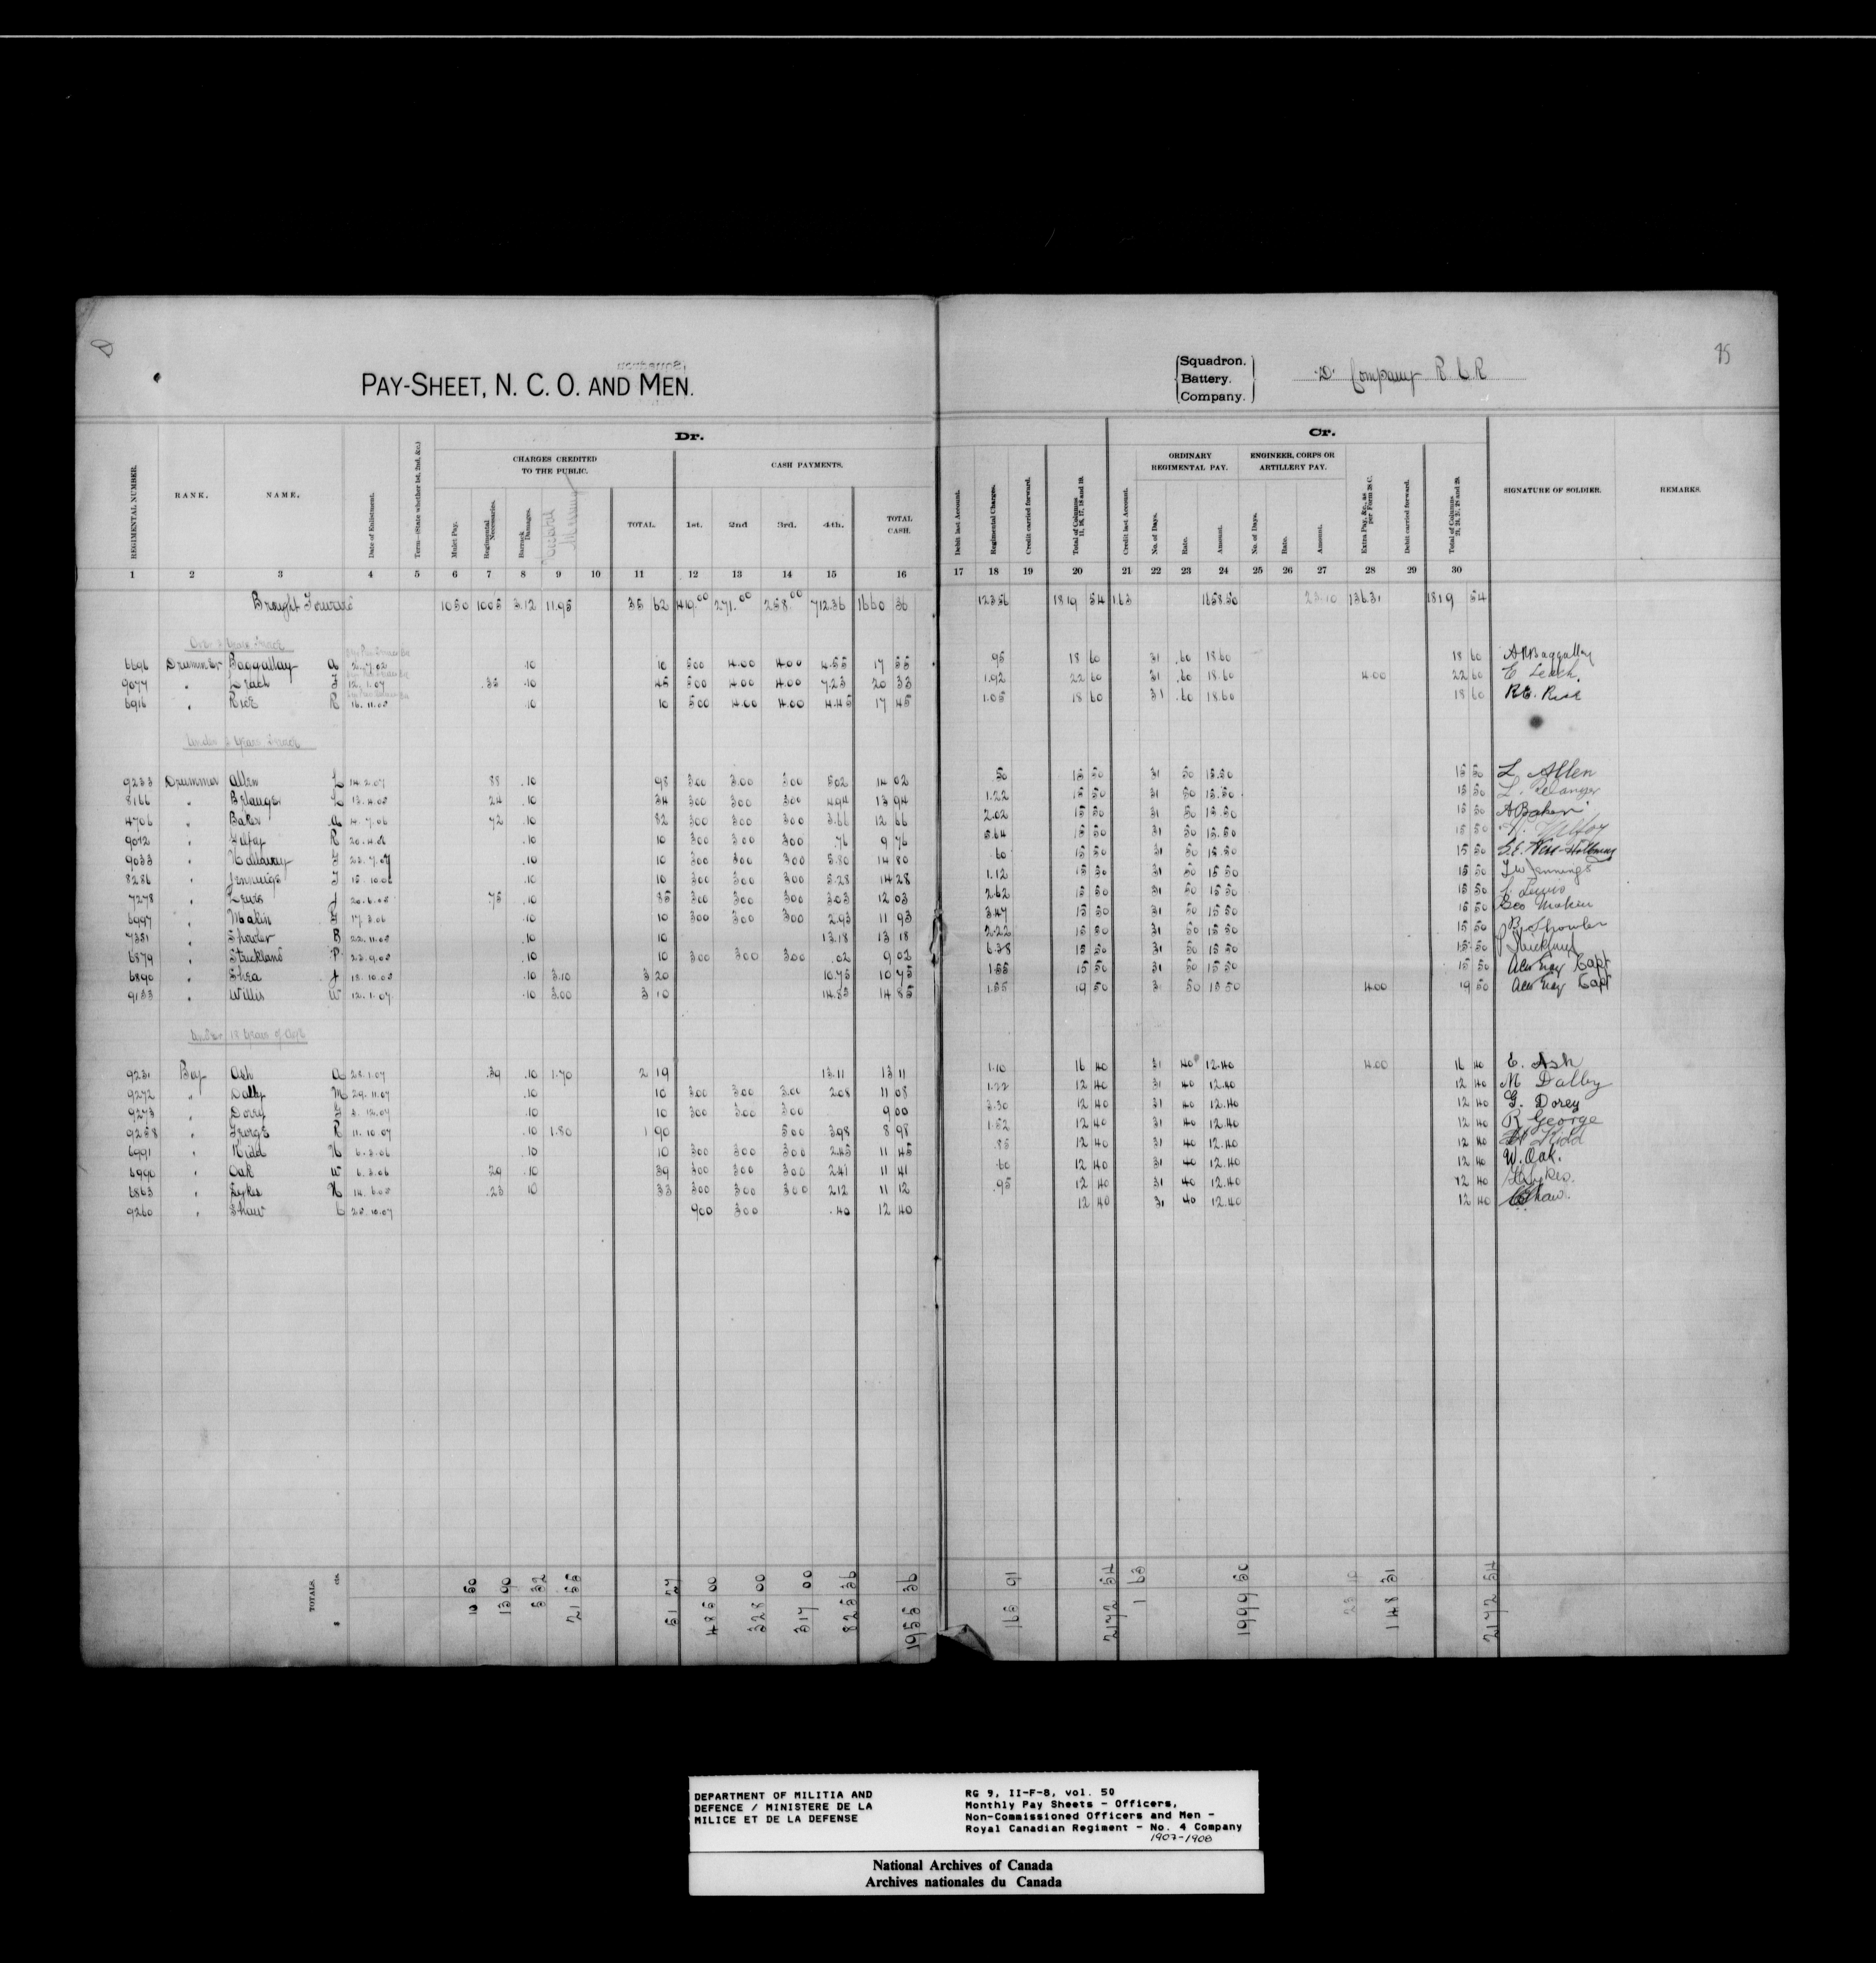 PAY-SHEET, N. C. O. AND MEN.
Squadron. Battery. Company. "D" Company R C R
95
Dr. Cr.
CHARGES CREDITED TO THE PUBLIC. CASH PAYMENTS. ORDINARY REGIMENTAL PAY. ENGINEER, CORPS OR ARTILLERY PAY.
REGIMENTAL NUMBER. RANK. NAME. Date of Enlistment. Term—(State whether 1st, 2nd, &c.) Mulct Pay. Regimental Necessaries. Barrack Damages. Hospital Messing TOTAL. 1st. 2nd 3rd. 4th. TOTAL CASH. Debit last Account. Regimental Charges. Credit carried forward. Total of Columns 11, 16, 17, 18 and 19. Credit last Account. No. of Days. Rate. Amount. No. of Days. Rate. Amount. Extra Pay, &c., as per Form 28 C. Debit carried forward. Total of Columns 21, 24, 27, 28 and 29. SIGNATURE OF SOLDIER. REMARKS.
1 2 3 4 5 6 7 8 9 10 11 12 13 14 15 16 17 18 19 20 21 22 23 24 25 26 27 28 29 30
Brought Forward 10 50 10 05 3.12 11.95 35 62 419.00 271.00 258.00 712.36 1660 36 123.56 1819 54 1.63 1658.50 23.10 136.31 1819 54
6696 Drummer Baggallay A 2.7.02 .10 10 500 4.00 4.00 4.55 17 55 .95 18 60 31 .60 18.60 18 60 A Baggalley
9077 " Leach 12.1.07 .35 .10 45 500 4.00 4.00 7.33 20 33 1.92 22 60 31 .60 18.60 4.00 22 60 E Leach.
6916 " Rice R 16.11.05 .10 10 500 4.00 4.00 4.45 17 45 1.05 18 60 31 .60 18.60 18 60 R.E. Rice
9233 Drummer Allen L 14.2.07 88 .10 98 300 3.00 300 5.02 14 02 .50 15 50 31 50 15.50 15 50 L. Allen
8166 " Belanger L 13.4.05 24 .10 34 300 300 300 4.94 13 94 1.22 15 50 31 50 15.50 15 50 L. Belanger
4706 " Baker A 4.7.06 72 .10 82 300 300 300 3.66 12 66 2.02 15 50 31 50 15.50 15 50 A Baker
9072 " R 20.4.06 .10 10 300 300 300 .76 9 76 5.64 15 50 31 50 15.50 15 50
9033 " Hallaway 23.7.07 .10 10 300 300 300 5.80 14 80 .60 15 50 31 50 15.50 15 50
8286 " Jennings 15.10.06 .10 10 300 300 300 5.28 14 28 1.12 15 50 31 50 15 50 15 50 Jennings
7278 " Lewis J 20.6.05 .75 .10 85 300 300 300 3.03 12 03 2.62 15 50 31 50 15 50 15 50 J. Lewis
6997 " Makin 17.3.06 .10 10 300 300 300 2.93 11 93 3.47 15 50 31 50 15 50 15 50 Geo Maken
7351 " Showler B 22.11.05 .10 10 13.18 13 18 2.22 15 50 31 50 15 50 15 50 B. Showler
6879 " Strickland P 23.9.05 .10 10 300 300 300 .02 9 02 6.38 15 50 31 50 15 50 15 50 P Strickland
6890 " Shea J 13.10.05 .10 3.10 3 20 10.75 10 75 1.55 15 50 31 50 15 50 15 50 Capt
9133 " Willis W 12.1.07 .10 3.00 3 10 14.85 14 85 1.55 19 50 31 50 15 50 4.00 19 50 Capt
Under 18 Years of Age
9231 Boy Ash A 28.1.07 .39 .10 1.70 2 19 13.11 13 11 1.10 16 40 31 40 12.40 4.00 16 40 E. Ash
9272 " Dalby M 29.11.07 .10 10 300 300 3.00 2.08 11 08 1.22 12 40 31 40 12.40 12 40 M Dalby
9273 " Dorey G 3.12.07 .10 10 300 300 300 9 00 3.30 12 40 31 40 12.40 12 40 G. Dorey
9258 " George R 11.10.07 .10 1.80 1 90 500 3.98 8 98 1.52 12 40 31 40 12.40 12 40 R George
6991 " Kidd H 6.3.06 .10 10 300 300 300 2.45 11 45 .85 12 40 31 40 12.40 12 40 H Kidd
6990 " Oak W 6.3.06 .29 .10 39 300 300 300 2.41 11 41 .60 12 40 31 40 12.40 12 40 W. Oak.
6863 " Sykes H 14.8.05 .23 10 33 300 300 300 2.12 11 12 .95 12 40 31 40 12.40 12 40 H Sykes.
9260 " Shaw C 23.10.07 900 300 .40 12 40 12 40 31 40 12.40 12 40 C Shaw.
TOTALS. $ cts. 10 50 13 90 5 32 21 55 51 27 485 00 328 00 317 00 825 36 1955 36 165 91 2172 54 1 63 1999 50 23 10 148 31 2172 54
DEPARTMENT OF MILITIA AND
DEFENCE / MINISTERE DE LA
MILICE ET DE LA DEFENSE
RG 9, II-F-8, vol. 50
Monthly Pay Sheets - Officers,
Non-Commissioned Officers and Men -
Royal Canadian Regiment - No. 4 Company
1907-1908
National Archives of Canada
Archives nationales du Canada